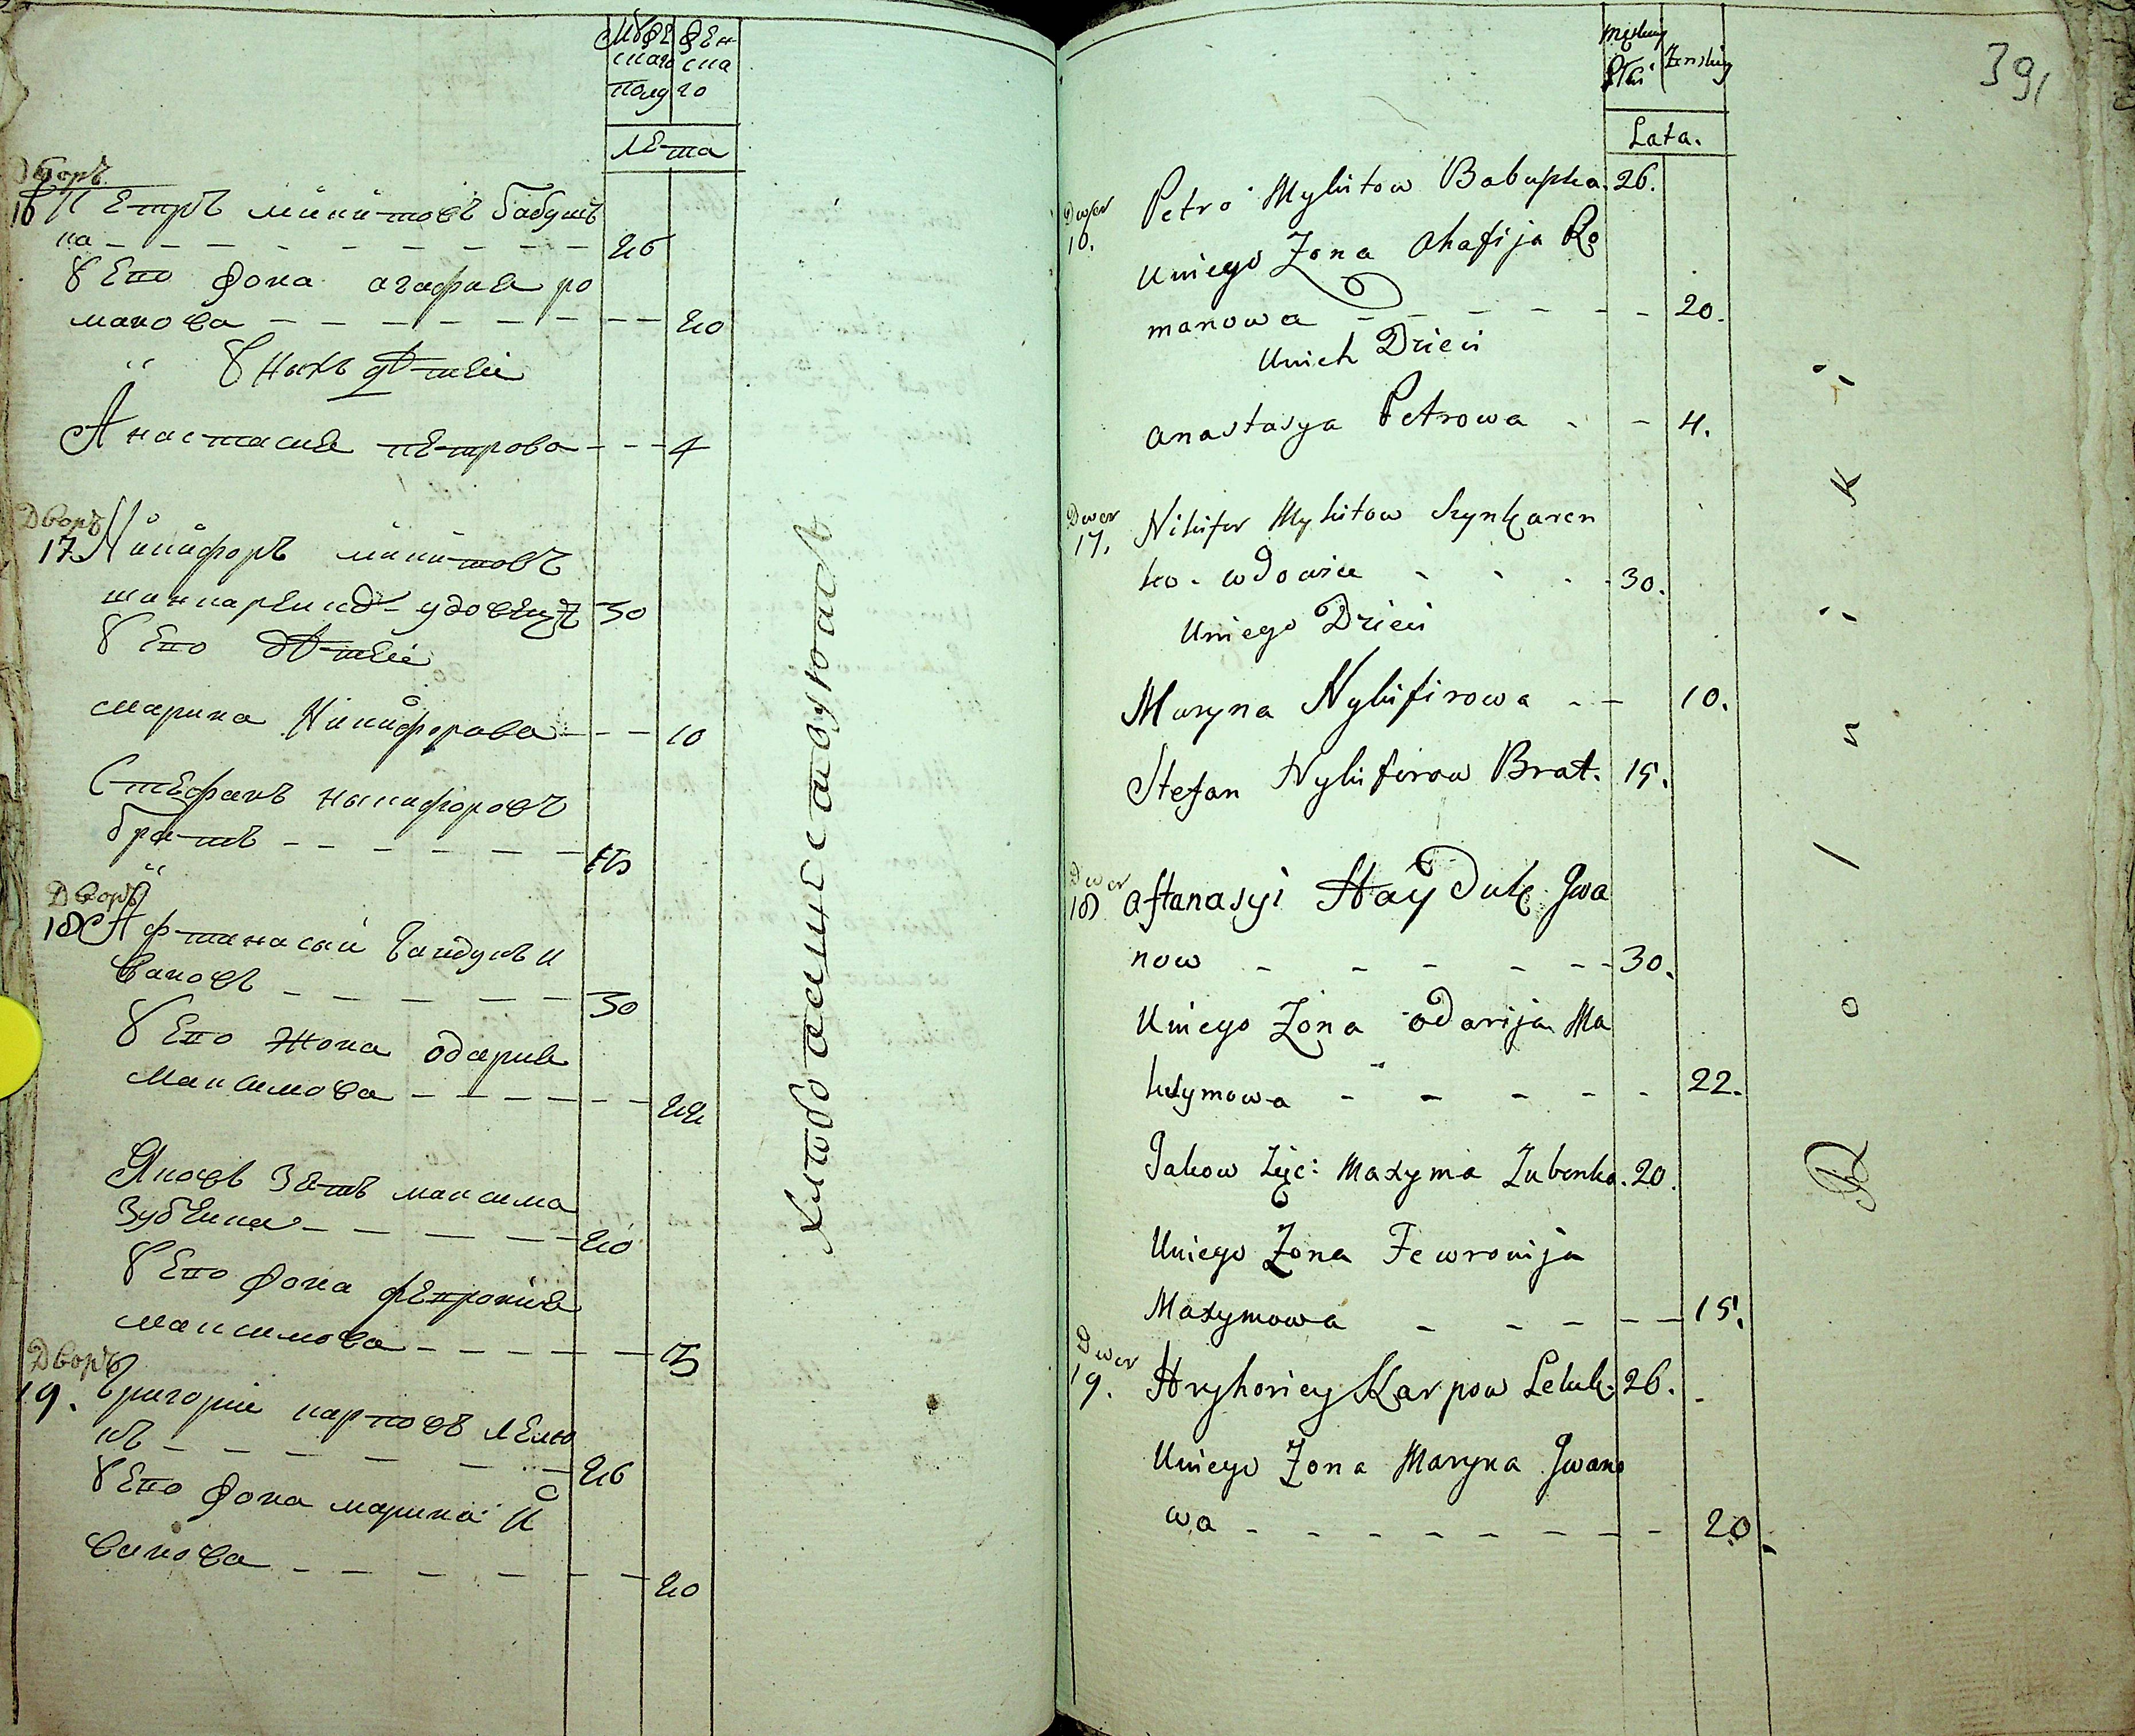 Мужескаго полу
Женскаго
Лѣта
Дворъ
16 Петръ микитовъ бабушъ
ка 26
У Его жона агафия ро
манова 20
У нихъ дѣтеи
Анастасия петрова 4
Дворъ
17. Никифоръ микитовъ
шинкаренко удовецъ 30
У Его дѣтеи
марина Никифорова 10
Стефанъ никифоровъ
братъ 15
Дворъ
18 Афтанасий гайдукъ и
вановъ 30
У Его жона одария
Максимова 22
Яковъ Зять максима
Зубенка 20
У Его жона феврония
максимова 15
Дворъ
19. Григорий карповъ лелю
къ 26
У Его жона марина И
ванова 20
хлѣбопашествуютъ
391
męskiey
Płci
żenskiey
Lata.
Dwor
16. Petro Mykitow Babuszka. 26.
Uniego Zona Ahafija Ro
manowa 20.
Unich Dzieci
Anastasya Petrowa 4.
Dwor
17. Nikifor Mykitow Szynkaren
ko. wdowiec 30.
Uniego Dzieci
Maryna Nykifirowa 10.
Stefan Nykiforow Brat. 15.
Dwor
18 Aftanasyi Hayduk Jwa
now 30.
Uniego Zona Odarija Ma
ksymowa 22.
Jakow Zięć: Maxyma Zubenka. 20.
Uniego Zona Fewronija
Maxymowa 15.
Dwor
19. Hryhoriey Karpow Leluk. 26.
Uniego Zona Maryna Jwano
wa 20.
Rolniki